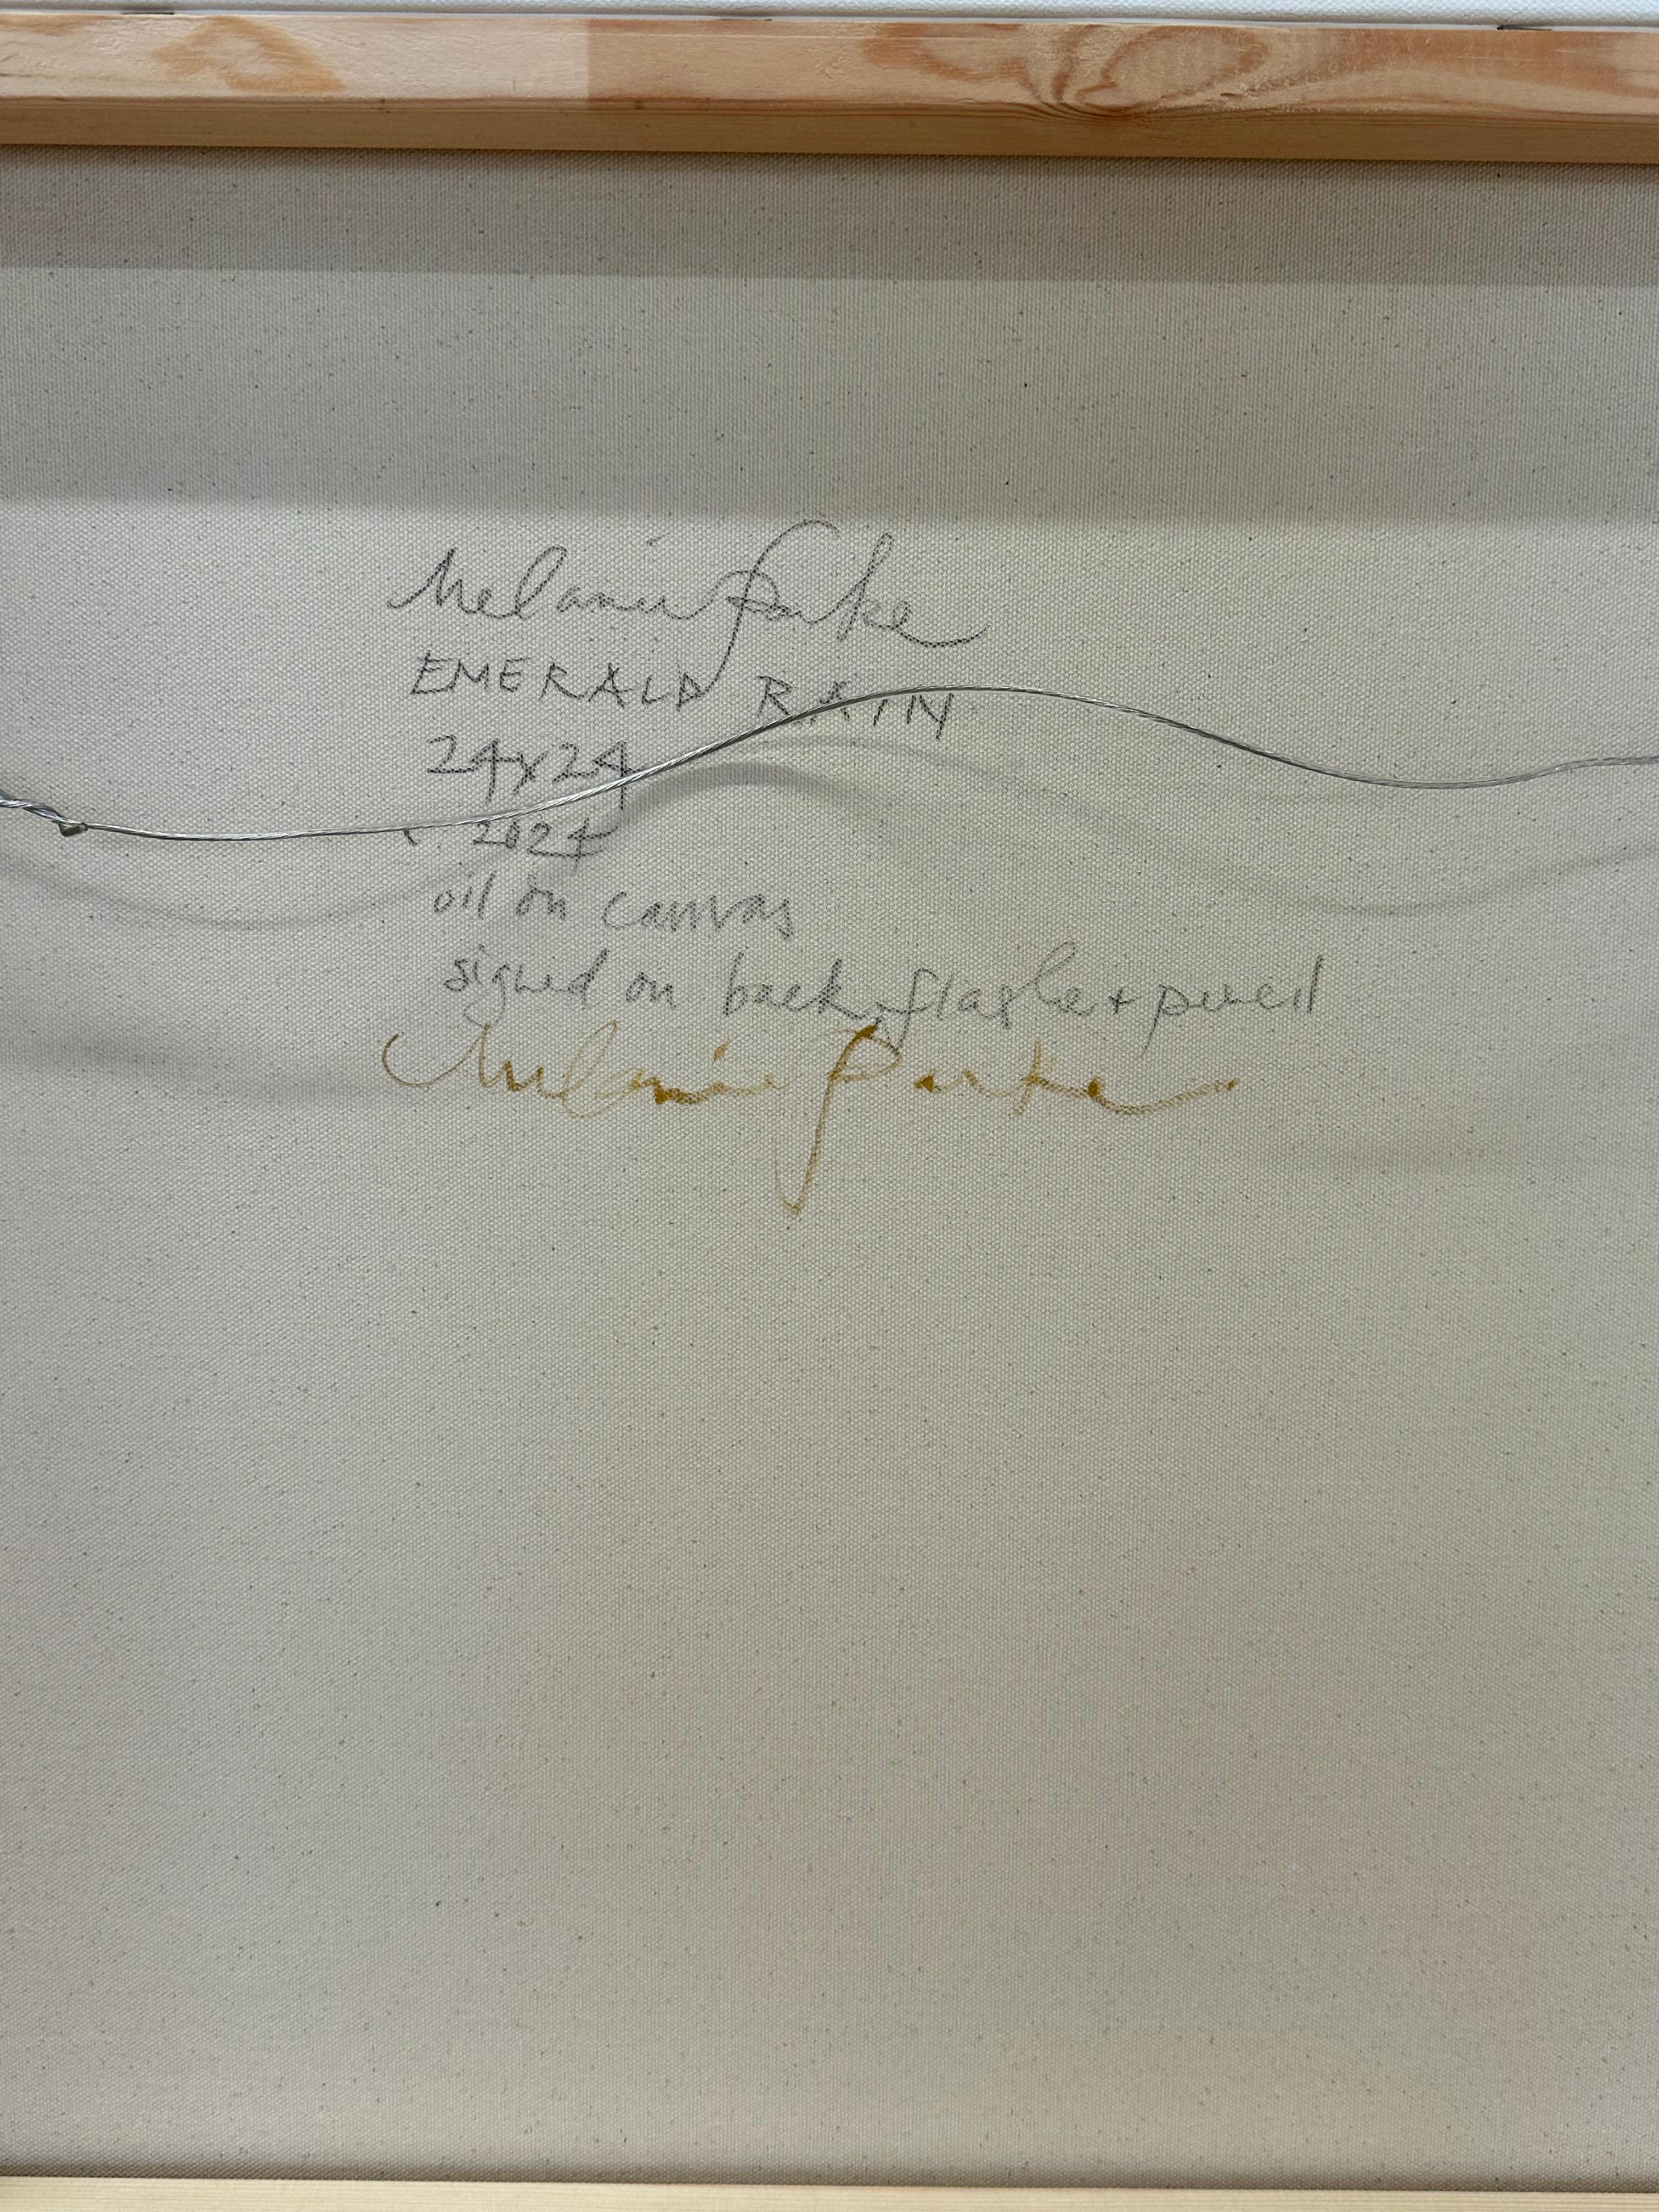 Melanie Parke
EMERALD RAIN
24x24
2024
oil on canvas
signed on back, flashe + pencil
Melanie Parke